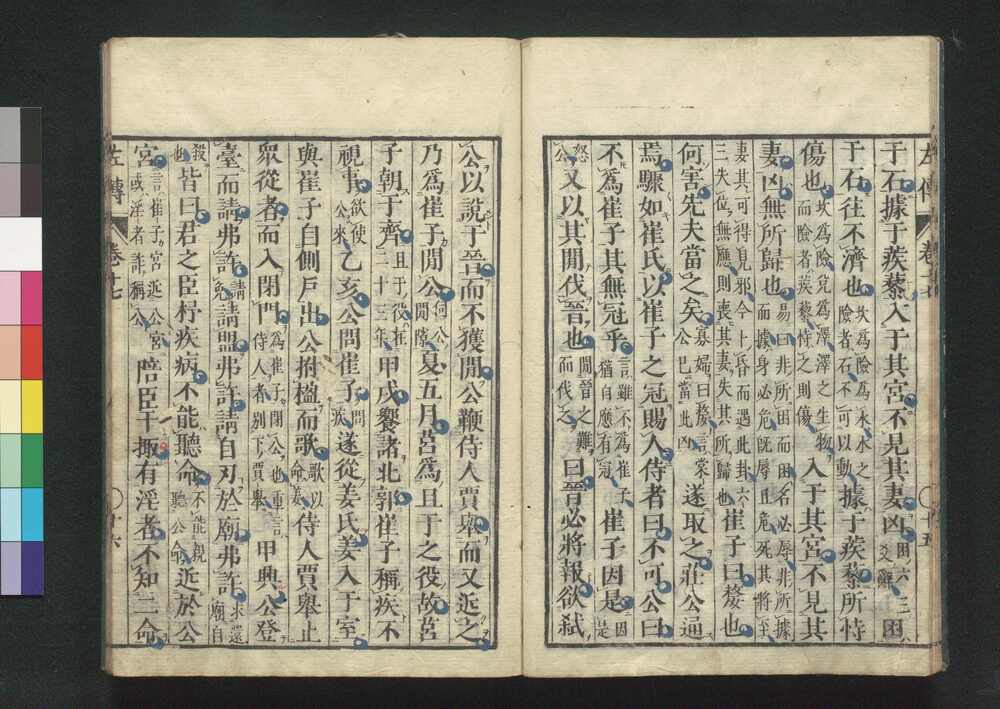 左傳 卷十七 十五
于石據于蒺藜入于其宮不見其妻凶困六三爻辭困
于石往不濟也坎為險為水水之險者石不可以動據于蒺藜所恃
傷也坎為險兌為澤澤之生物而險者蒺藜恃之則傷入于其宮不見其
妻凶無所歸也易曰非所困而困名必辱非所據而據身必危既辱且危死其將至
妻其可得見邪今卜昏而遇此卦六三失位無應則喪其妻失其所歸也崔子曰嫠也
何害先夫當之矣寡婦曰嫠言棠公已當此凶遂取之莊公通
焉驟如崔氏以崔子之冠賜人侍者曰不可公曰
不為崔子其無冠乎言雖不為崔子猶自應有冠崔子因是因是
怒公又以其間伐晉也間晉之難而伐之曰晉必將報欲弒
公以說于晉而不獲間公鞭侍人賈舉而又近之
乃為崔子間公伺公間隙夏五月莒為且于之役故莒
子朝于齊且于役在二十三年甲戌饗諸北郭崔子稱疾不
視事欲使公來乙亥公問崔子問疾遂從姜氏姜入于室
與崔子自側戶出公拊楹而歌歌以命姜侍人賈舉止
眾從者而入閉門為崔子閉公也重言侍人者別下賈舉甲興公登
臺而請弗許請免請盟弗許請自刃於廟弗許求還廟自
殺也皆曰君之臣杼疾病不能聽命不能親聽公命近於公
宮言崔子宮近公宮或淫者詐稱公陪臣干掫有淫者不知二命
左傳 卷十七 十六